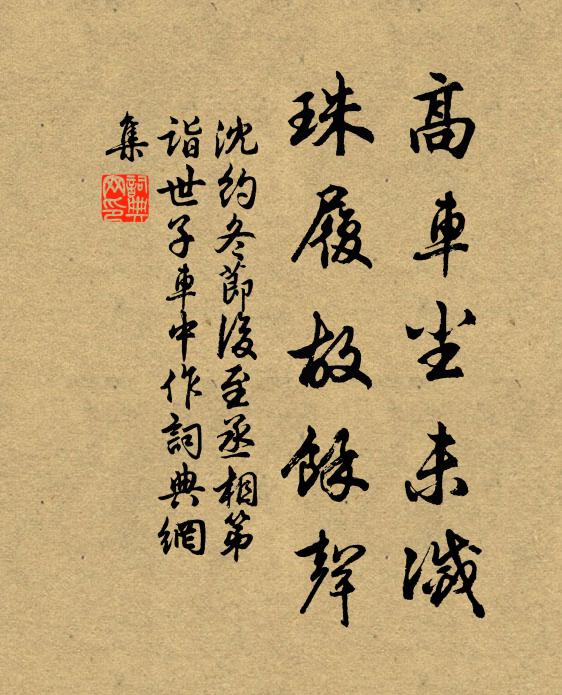 高車塵未滅
珠履故餘聲
沈約冬節後至丞相第
詣世子車中作詞典網
集
詞典
网印